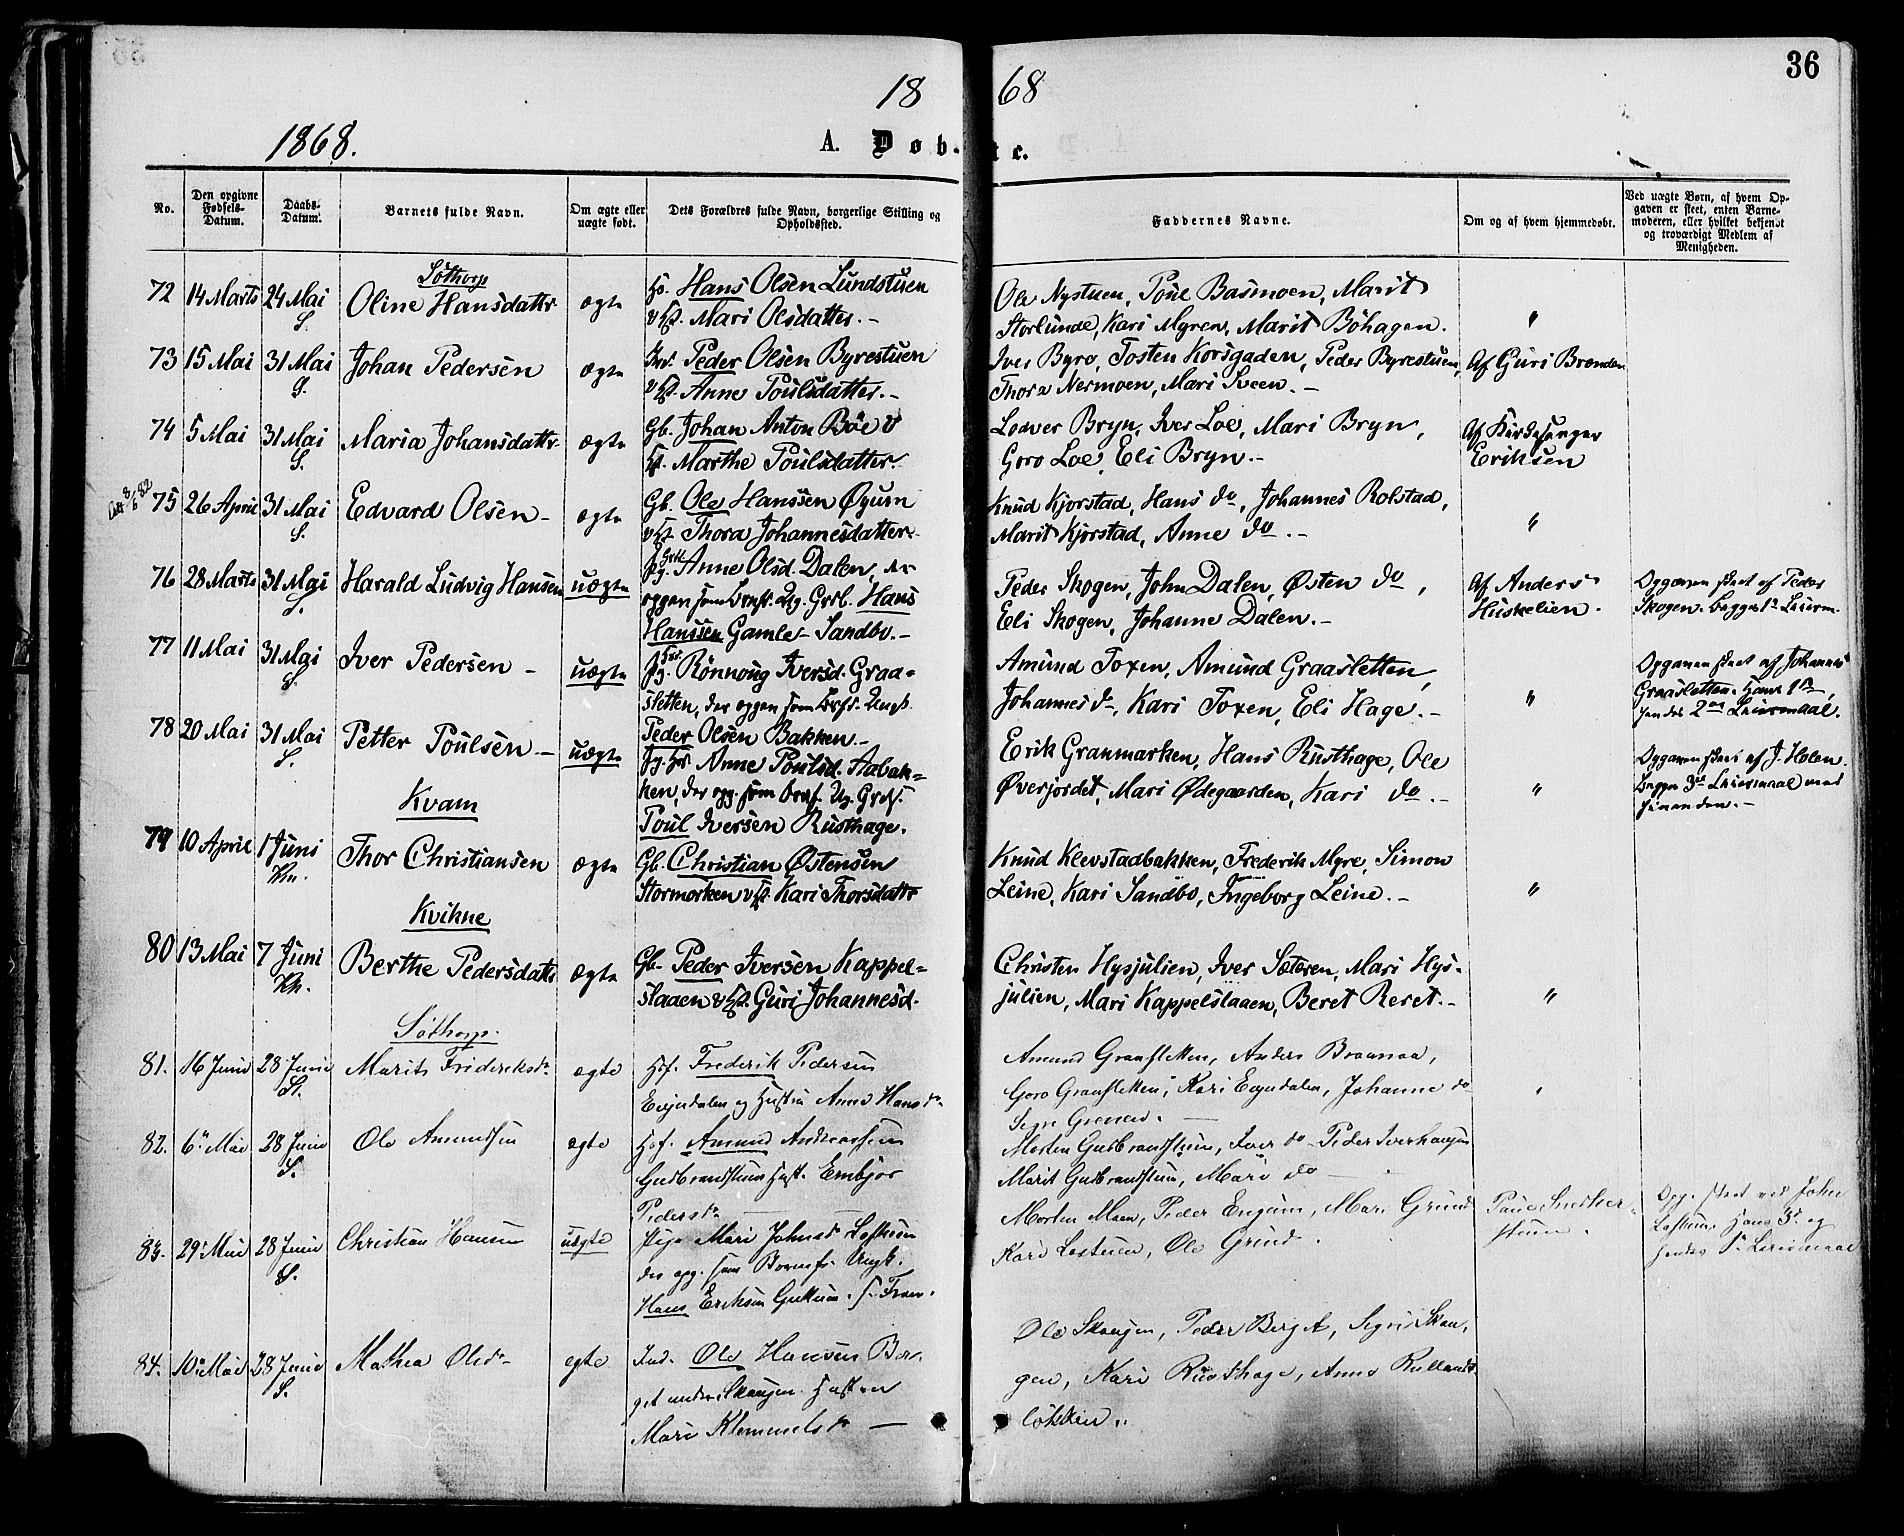 36
18 68
1868.
A. Døb- te.
No.
Den opgivne Fødsels-Datum.
Daabs-Datum.
Barnets fulde Navn.
Om ægte eller uægte født.
Dets Forældres fulde Navn, borgerlige Stilling og Opholdssted.
Faddernes Navne.
Om og af hvem hjemmedøbt.
Ved uægte Børn, af hvem Opgaven er skeet, enten Barnemoderen, eller hvilket bekjendt og troværdigt Medlem af Menigheden.
Söthorp
72 14 Marts 24 Mai S. Oline Hansdattr ægte
Hans Olsen Lundstuen
Mari Olsdatter.-
Ole Nystuen, Poul Basmoen, Marit
Storlunde, Kari Myren, Marit Böhagen. "
73 15 Mai 31 Mai S. Johan Pedersen ægte
Peder Olsen Byrestuen
Anne Poulsdatter.-
Iver Byre, Tosten Korsgaden, Peder Byrestuen,
Thora Nermoen, Mari Sveen.-
Af Guri Brænden
74 5 Mai 31 Mai S. Maria Johansdattr ægte
Gb. Johan Anton Böe v
Marthe Poulsdatter.
Lodver Bryn, Iver Loe, Mari Bryn,
Goro Loe, Eli Bryn.-
Af Kirkesanger
Eriksen
75 26 April 31 Mai S. Edvard Olsen- ægte
Gb. Ole Hanssen Øyum
Thora Johannesdatter.
Knud Kjorstad, Hans do, Johannes Rolstad,
Marit Kjorstad, Anne do.- "
76 28 Marts 31 Mai S. Harald Ludvig Hansen uægte
Pg. Anne Olsd. Dalen, der
opgav som Barnef. Ug. Grdb. Hans
Hanssen Gamle-Sandbo.-
Peder Skogen, John Dalen, Østen do,
Eli Skogen, Johanne Dalen.-
Af Anders
Huskelien.
Opgaven skeet af Peder
Skogen. Begges 1ste Leierm.
77 11 Mai 31 Mai S. Iver Pedersen- uægte
Pg. Rönnoug Iversd. Graa-
sletten, der opgav som Brfd. Ungk.
Peder Olsen Bakken.-
Amund Toxen, Amund Graasletten,
Johannes do, Kari Toxen, Eli Hage.- "
Opgaven skeet af Johannes
Graasletten. Hans 1ste,
hendes 2det Leiermaal.
78 20 Mai 31 Mai S. Petter Poulsen- uægte
Anne Poulsd. Aabak-
ken, der opg. som Barnef.
Poul Iversen Rusthage.
Erik Granmarken, Hans Rusthage, Ole
Øverjordet, Mari Ødegaarden, Kari do.- "
Opgaven skeet af J. Holen.
Begges 3die Leiermaal med
hinanden.-
Kvam
79 10 April 1 Juni Km. Thor Christiansen ægte
Gb. Christian Østensen
Stormorken Kari Thorsdattr
Knud Klevstadbakken, Frederik Myre, Simon
Leine, Kari Sandbo, Ingeborg Leine.- "
Kvikne
80 13 Mai 7 Juni Kk. Berthe Pedersdatt ægte
Gb. Peder Iversen Kappel-
slaaen Guri Johannesd.
Christen Hysjulien, Iver Sæteren, Mari Hys-
julien, Mari Kappelslaaen, Beret Reret.- "
Söthorp.
81. 16 Juni 28 Juni S. Marit Frideriksdr ægte
Frederik Pedersen
og Hustru Anne Hansdr
Amund Graasletten, Anders Braanaa,
Goro Graasletten, Kari, Johanne do
Grenen.
82. 6 Mai 28 Juni S. Ole Amundsen ægte
Amund Andreassen
Gudbrandstuen Hust. Embjør
Pedersdr
Morten Gudbrandstuen, Iver do Peder Iverhaugen
Marit Gudbrandstuen, Mari do
83. 29 Mai 28 Juni S. Christian Hansen uægte
Pige Mari Johnsd Lostuen
der opg. som Barnef. Ungk.
Hans Eriksen
Morten Moen, Peder Engum, Mari Grund
Kari Lostuen, Ole Grind.
Opg. skeet ved John
Lostuen, hans 3die og
hendes 1ste Leiermaal
84. 10 Mai 28 Juni S. Mathea Olsdr ægte
Ind. Ole Hansen Ber-
get under Skaugen. Hustru
Mari Klemmetsdr
Ole Skaugen, Peder Berget, Sigri Skau,
gen, Kari Rusthage, Anne Rullands
løkken.